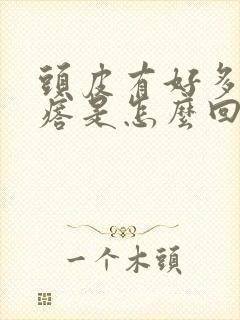 頭皮有好多
痞是怎麼回
一个木頭